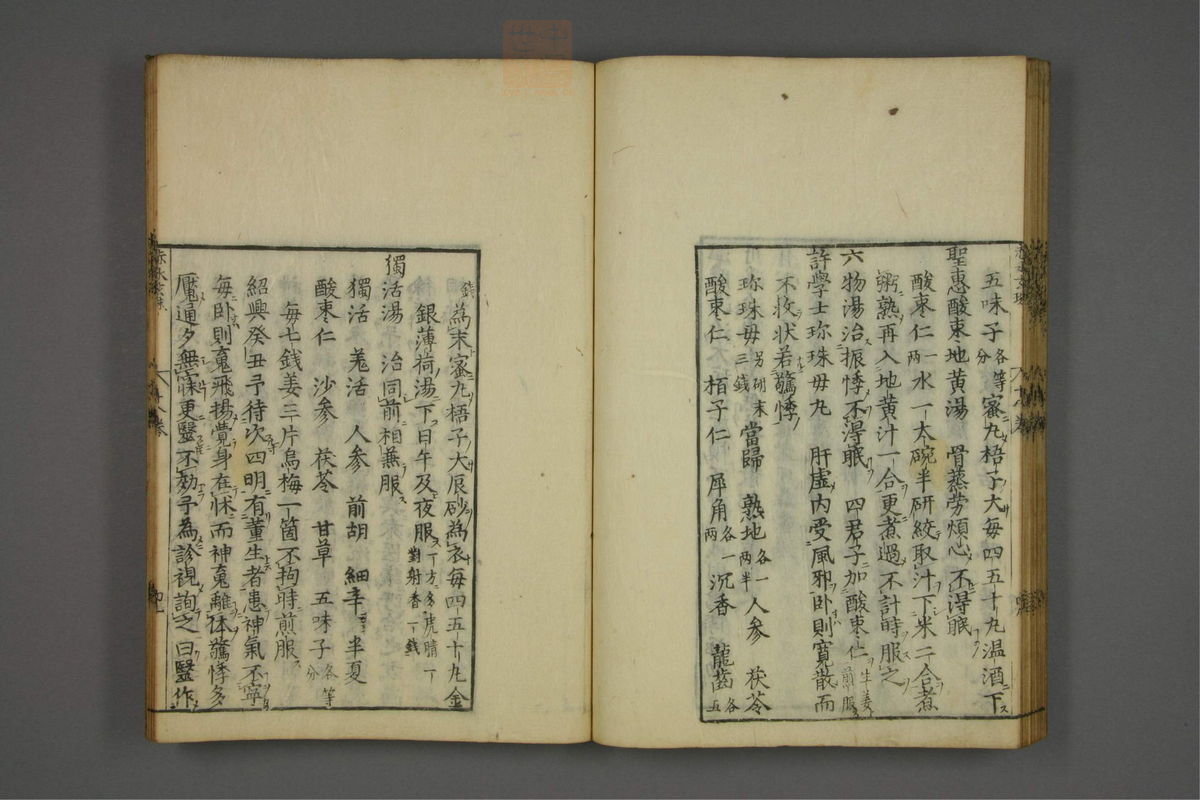 五味子各等分蜜丸梧子大每四五十丸温酒下
聖惠酸棗地黄湯 骨蒸劳煩心不得眠
酸棗仁一两水一大碗半研絞取汁下米二合煮
粥熟再入地黄汁一合更煮過不計時服之
六物湯治振悸不得眠 四君子加酸棗仁生姜煎服
許學士珎珠母丸 肝虚内受風邪卧則寛散而
不收状若驚悸
珎珠母三錢另研末當歸 熟地各一两半人参 茯苓
酸棗仁 栢子仁 犀角各一两沉香 龍齒各五
錢為末蜜丸梧子大辰砂為衣每四五十丸金
銀薄荷湯下日午及夜服一方多虎睛一對射香一錢
獨活湯 治同前相兼服
獨活 羗活 人参 前胡 細辛 半夏
酸棗仁 沙参 茯苓 甘草 五味子各等分
每七錢姜三片烏梅一箇不拘時煎服
紹興癸丑予待次四明有董生者患神氣不寧
每卧則䰟飛揚覺身在床而神䰟離体驚悸多
魘通夕無寐更醫不効予為診視詢之曰醫作